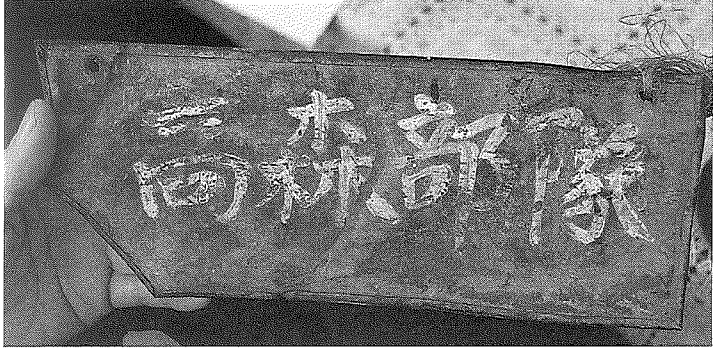 高森部隊